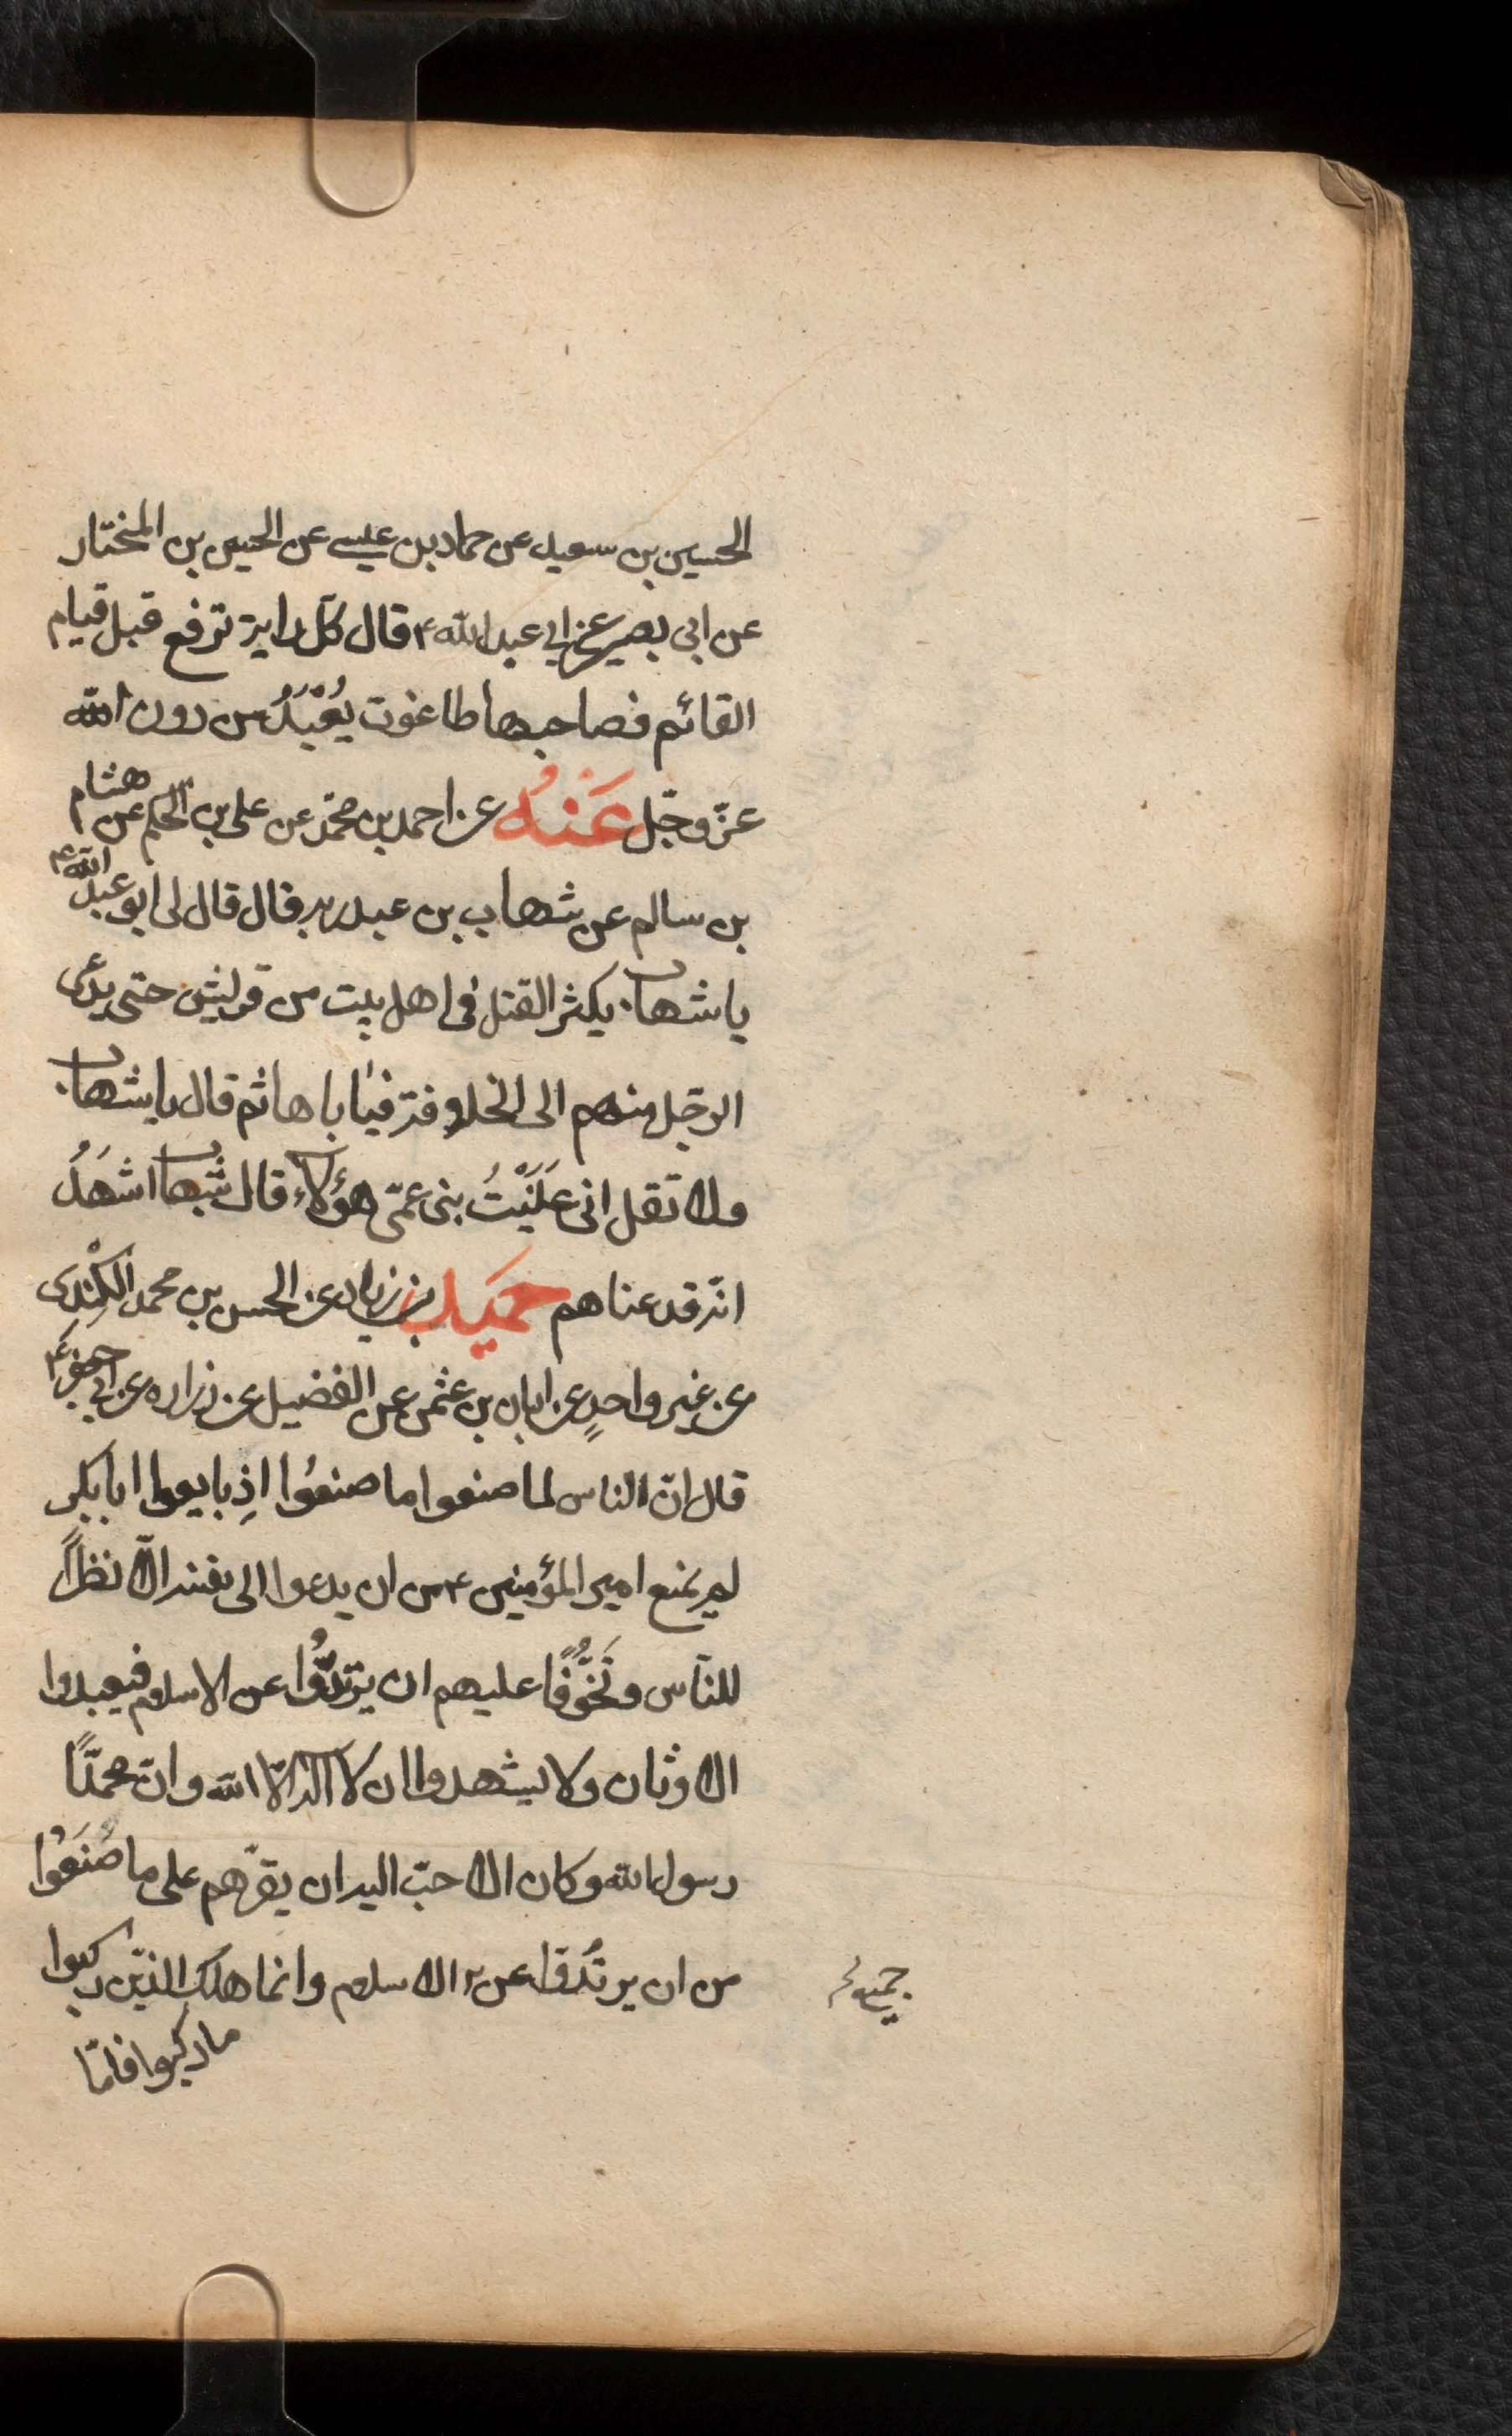 الحسين بن سعيد عن حماد بن عيسى عن الحسين بن المختار
عن ابى بصير عن ابى عبد الله ع قال كلّ راية ترفع قبل قيام
القائم فصاحبها طاغوت يُعْبَدُ من دون الله
عزّ وجّل عَنْهُ عن احمد بن محمّد عن على بن الحكم عن هشام
بن سالم عن شهاب بن عبد ربه قال قال لى ابو عبد الله ع
يا شهاب يكثر القتل فى اهل بيت من قريش حتى يدعى
الرجّل منهم الى الخلافة فيأباها ثم قال يا شهاب
ولا تقل انى عَنَيْتُ بنى عمّى هؤلاء قال شهاب اشهَدُ
انّه قد عناهم حميد بن زياد عن الحسن بن محمد الكِنْدى
عن غير واحدٍ عن ابان بن عثمن عن الفضيل عن زراره عن ابى جعفر ع
قال انّ الناس لما صنعوا ما صنعُوا اذِ بايعوا ابا بكر
لم يمنع امير المؤمنين ع من ان يدعوا الى نفسه الّا نظراً
للنّاس وتَخَوُّفًا عليهم ان يرتدُّوا عن الاسلام فيعبدوا
الاوثان ولا يشهدوا ان لا آله الّا الله وانّ محمدًّا
رسول الله وكان الاحبّ اليه ان يقرّهم على ما صَنَعُوْا
من ان يرتُدّوا عن الاسلام وانما هلك الذيّن ركبوا
ما ركبوا فامّا
جميع